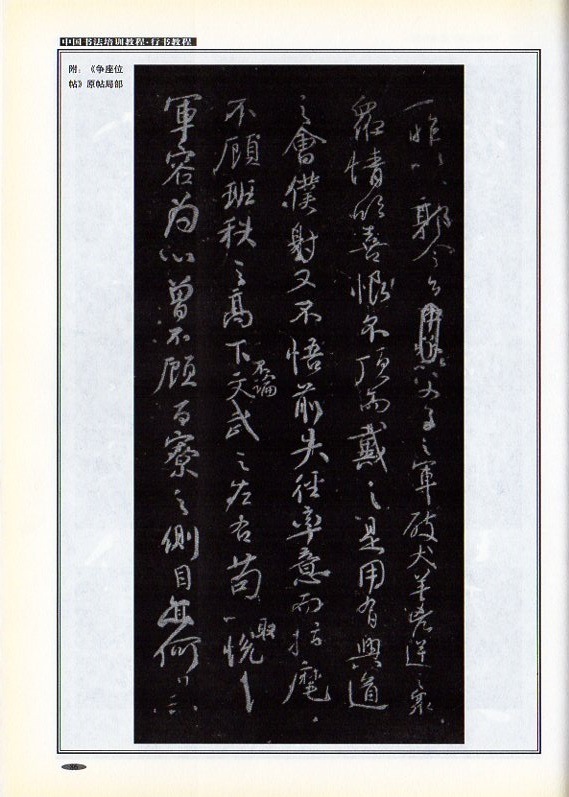 中国书法培训教程·行书教程
附：《争座位
帖》原帖局部
一昨以郭令公以父子之軍破犬羊兇逆之衆
衆情欣喜恨不頂而戴之是用有興道
之會僕射又不悟前失徑率意而指麾
不顧班秩之高下不論文武之左右苟以取悅
軍容為心曾不顧百寮之側目亦何